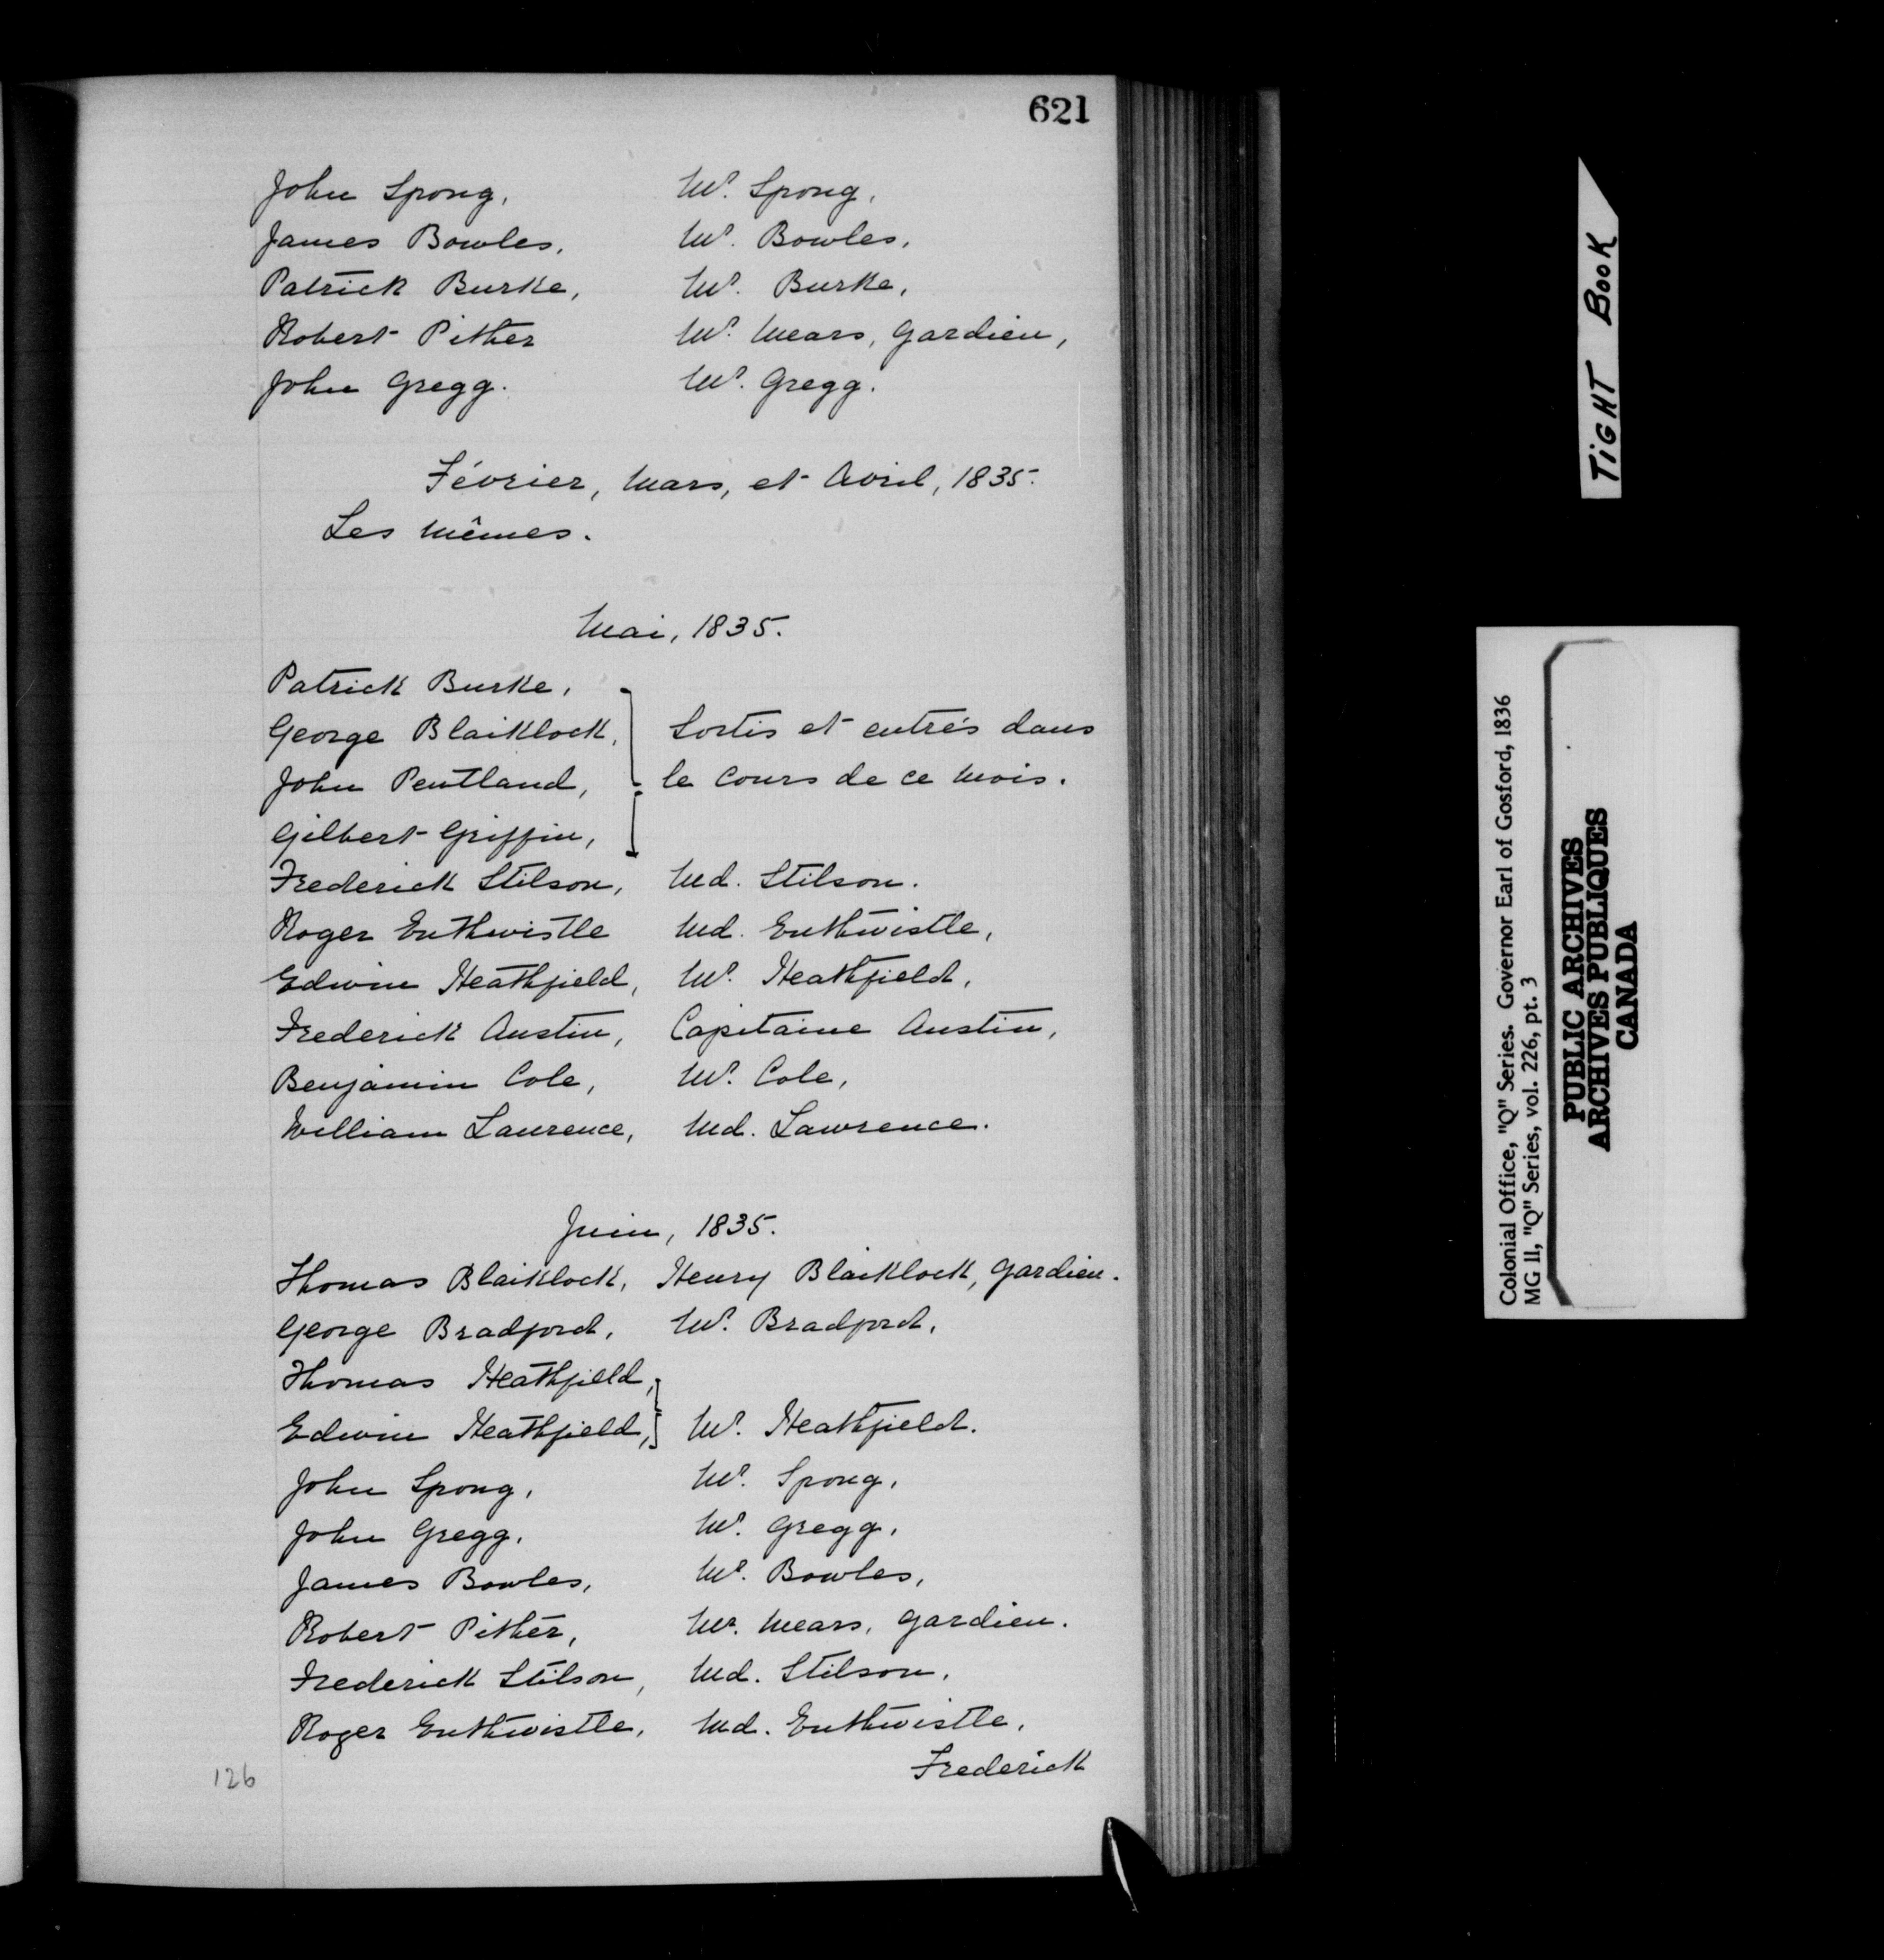 621
John Spong, Mr. Spong,
James Bowles, Mr. Bowles,
Patrick Burke, Mr. Burke,
Robert Pither Mr. Mears, Gardien,
John Gregg. Mr. Gregg.
Février, Mars, et Avril, 1835.
Les Mêmes.
Mai, 1835.
Patrick Burke,
George Blaiklock, Sortis et entrés dans
John Pentland, le Cours de ce Mois.
Gilbert Griffin,
Frederick Stilson, Md. Stilson.
Roger Enthwistle Md. Enthwistle,
Edwin Heathfield, Mr. Heathfield,
Frederick Austin, Capitaine Austin,
Benjamin Cole, Mr. Cole,
William Laurence, Md. Lawrence.
Juin, 1835.
Thomas Blaiklock, Henry Blaiklock, Gardien.
George Bradford, Mr. Bradford,
Thomas Heathfield,
Edwin Heathfield, Mr. Heathfield.
John Spong, Mr. Spong,
John Gregg, Mr. Gregg,
James Bowles, Mr. Bowles,
Robert Pither, Mr. Mears, Gardien.
Frederick Stilson, Md. Stilson,
Roger Enthwistle, Md. Enthwistle,
Frederick
126
TIGHT BOOK
Colonial Office, "Q" Series. Governor Earl of Gosford, 1836
MG 11, "Q" Series, vol. 226, pt. 3
PUBLIC ARCHIVES
ARCHIVES PUBLIQUES
CANADA